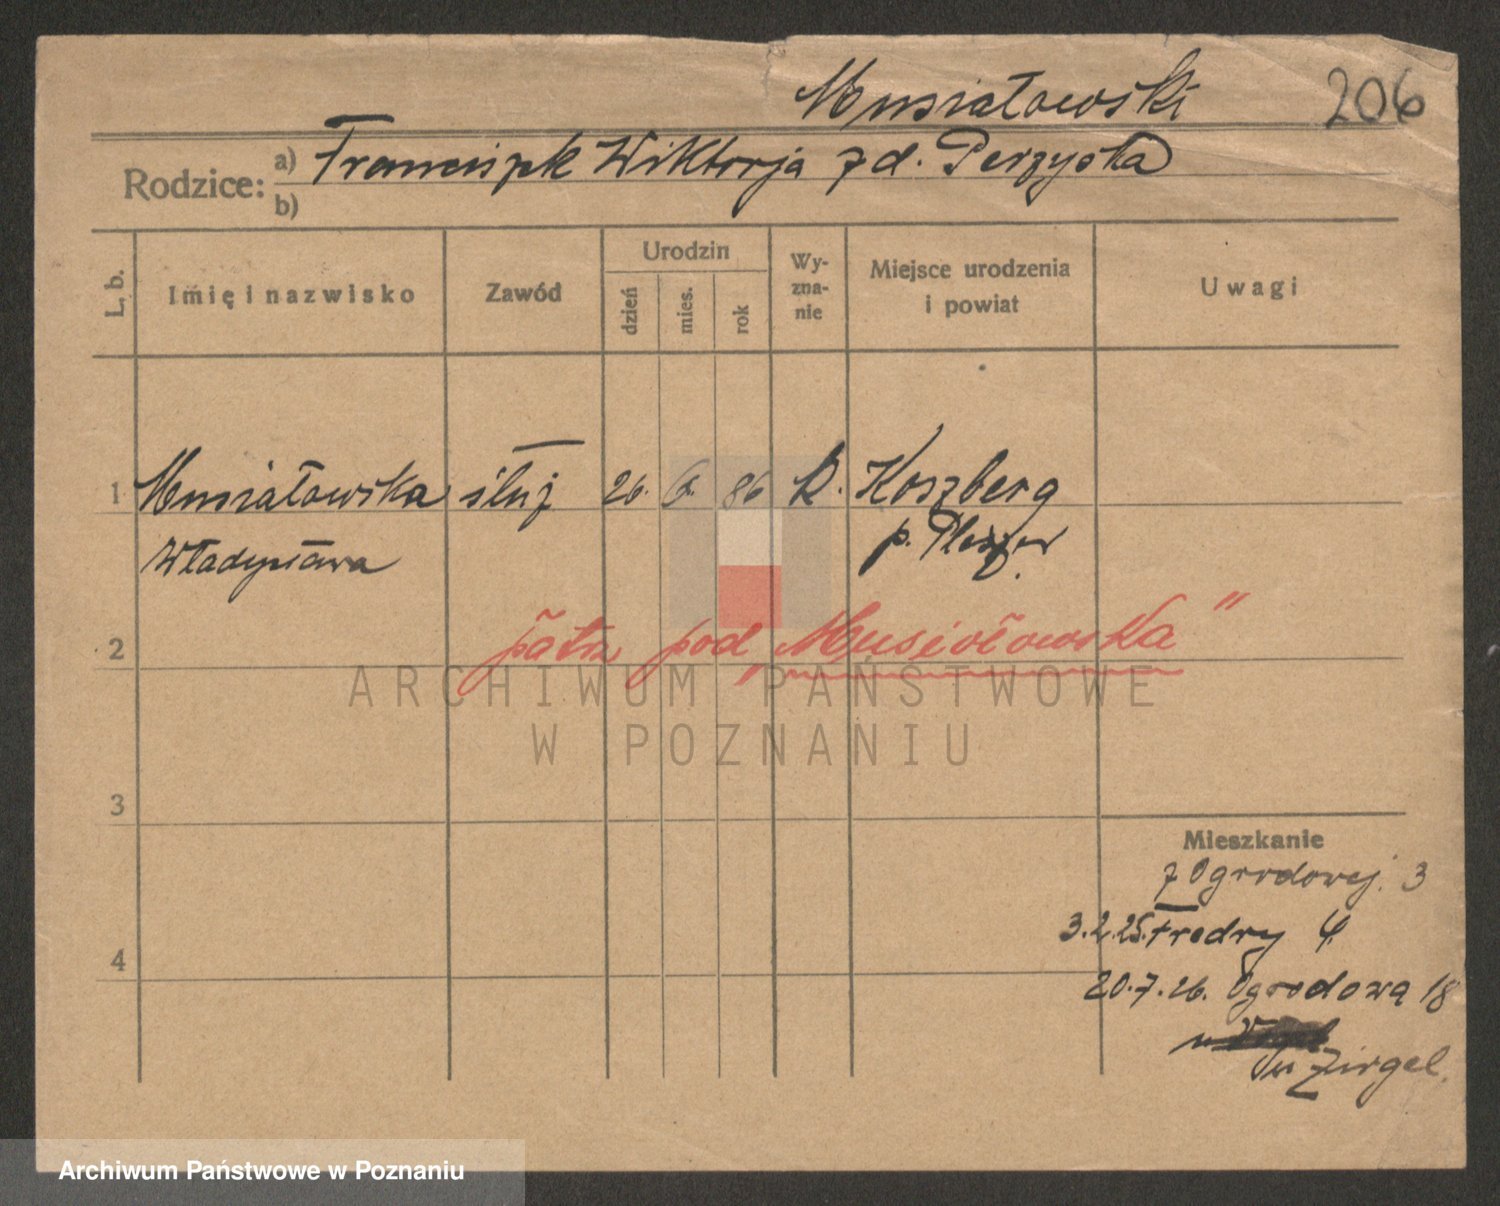 Musiałowski 206
Rodzice: a) Franciszek Wiktorja z d. Perzycka
b)
L. b. Imię i nazwisko Zawód Urodzin dzień mies. rok Wy-zna-nie Miejsce urodzenia i powiat Uwagi
1 Musiałowska służ 26. 6. 86 k. Koszberg
Władysława p. Pleszew
2 patrz pod „Musiołowska"
ARCHIWUM PAŃSTWOWE
W POZNANIU
3
Mieszkanie
z Ogrodowej 3
3.2.25. Fredry 4.
4
20.7.26. Ogrodowa 18
Zirgel.
Archiwum Państwowe w Poznaniu